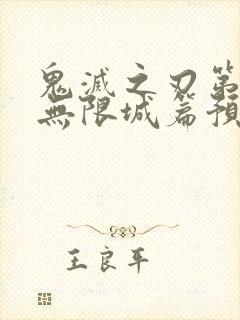 鬼滅之刃第
無限城篇預
王良平